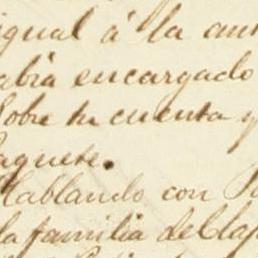 igual á la ant
abia encargado
sobre tu cuenta y
aquete.
Hablando con
la familia de